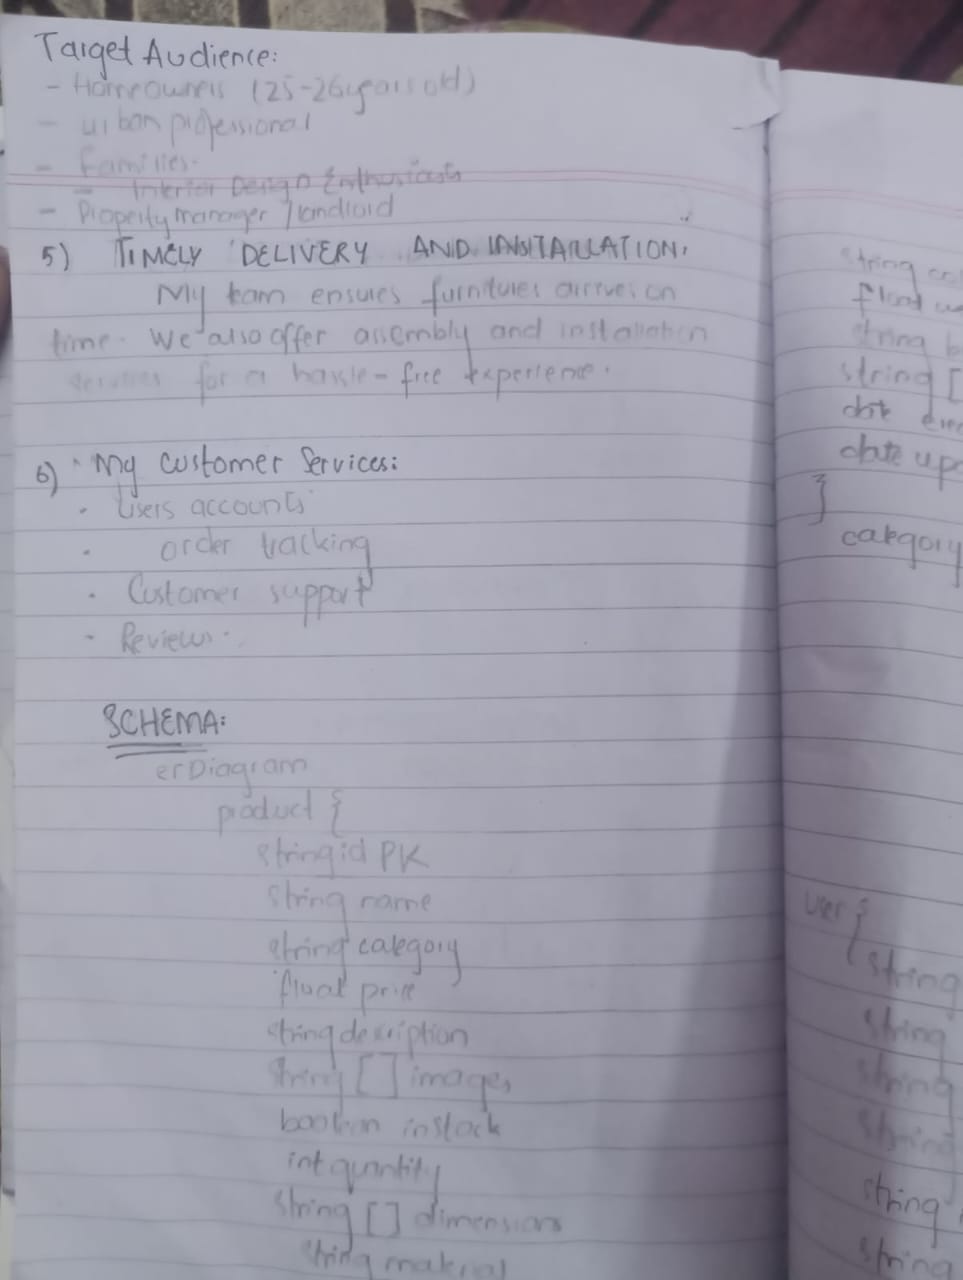 Target Audience:
- Homeowners (25-26 years old)
- urban professional
- Families.
- Interior Design Enthusiasts
- Property manager / landlord
5) TIMELY DELIVERY AND INSTALLATION.
My team ensures furnitures arrives on
time. We also offer assembly and installation
services for a hassle-free experience.
6) My Customer Services:
· Users accounts
· order tracking
· Customer support
· Reviews.
SCHEMA:
erDiagram
product {
string id PK
string name
string category
float price
string description
string [] images
boolean instock
int quantity
string [] dimensions
string material
string co
float
string b
string [
date
date up
}
category
user {
string
string
string
string
string
string